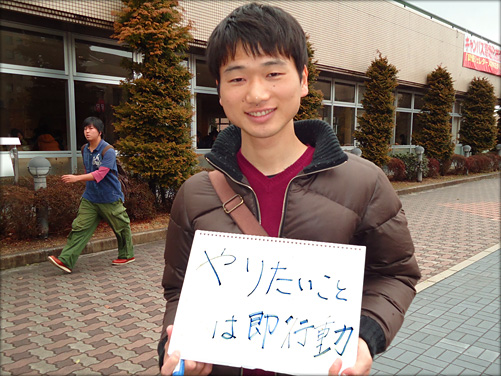 やりたいこと
は即行動